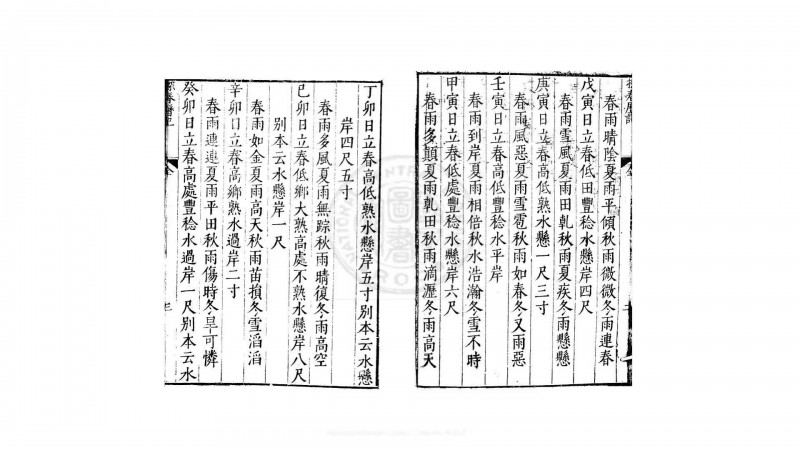 春雨晴陰夏雨平傾秋雨微微冬雨連春
戊寅日立春低田豐稔水懸岸四尺
春雨雪風夏雨田乹秋雨夏疾冬雨懸懸
庚寅日立春高低熟水懸一尺三寸
春雨風惡夏雨雪雹秋雨如春冬又雨惡
壬寅日立春高低豐稔水平岸
春雨到岸夏雨相倍秋水浩瀚冬雪不時
甲寅日立春低處豐稔水懸岸六尺
春雨多顛夏雨乹田秋雨滴瀝冬雨高天
丁卯日立春高低熟水懸岸五寸別本云水懸
岸四尺五寸
春雨多風夏雨無踪秋雨晴復冬雨高空
巳卯日立春低鄉大熟高處不熟水懸岸八尺
別本云水懸岸一尺
春雨如金夏雨高天秋雨苗損冬雪滔滔
辛卯日立春高鄉熟水過岸二寸
春雨連連夏雨平田秋雨傷時冬旱可憐
癸卯日立春高處豐稔水過岸一尺別本云水
三